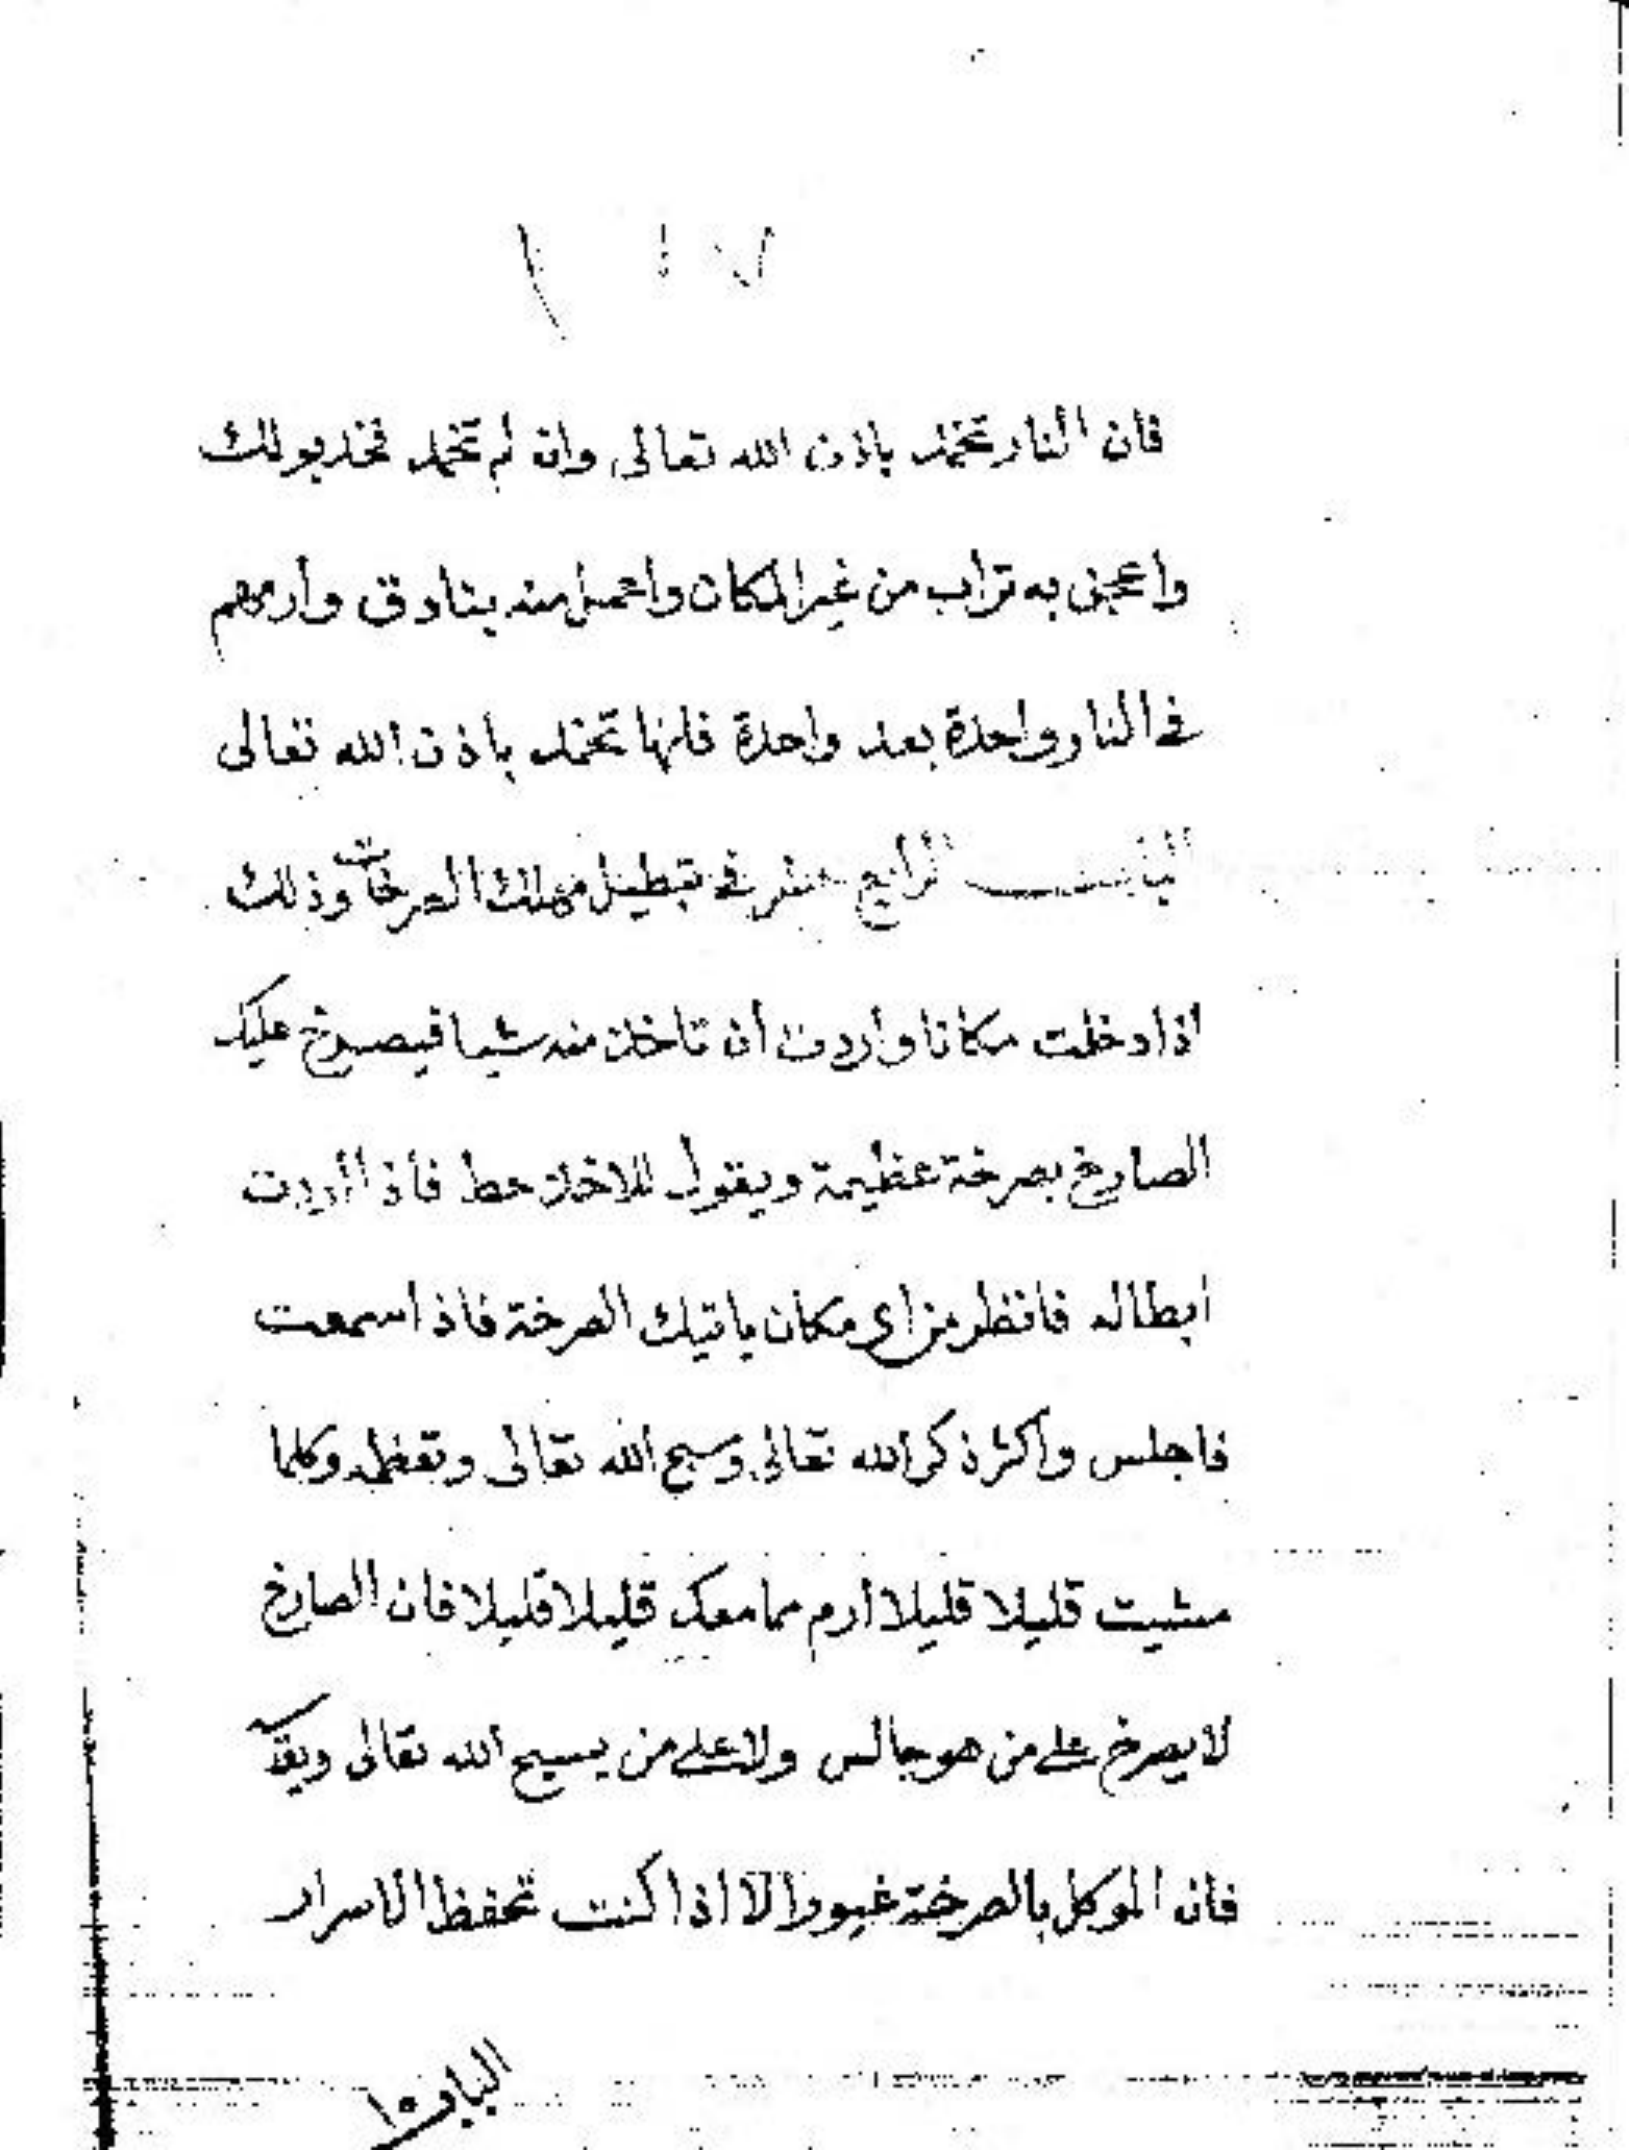 فان النار تخمد باذن الله تعالى وان لم تخمد فخد بولك
واعجن به تراب من غير المكان واعمل منه بنادق وأرميهم
في النار واحدة بعد واحدة فانها تخمد باذن الله تعالى
الباب الرابع عشر في تبطيل مهلك الصرخات وذلك
اذا دخلت مكانا وأردت أن تاخذ منه شيا فيصرخ عليك
الصارخ بصرخة عظيمة ويقول للاخذ حط فأذا أردت
ابطاله فانظر من اى مكان ياتيك الصرخة فاذا سمعت
فاجلس واكثر ذكر الله تعالى وسبح الله تعالى وتعظمه وكلما
مشيت قليلا قليلا أرم مما معك قليلا قليلا فان الصارخ
لا يصرخ على من هو جالس ولا على من يسبح الله تعالى
فان الموكل بالصرخة غيورا الا اذا كنت تحفظ الاسرار
الباب ١٥